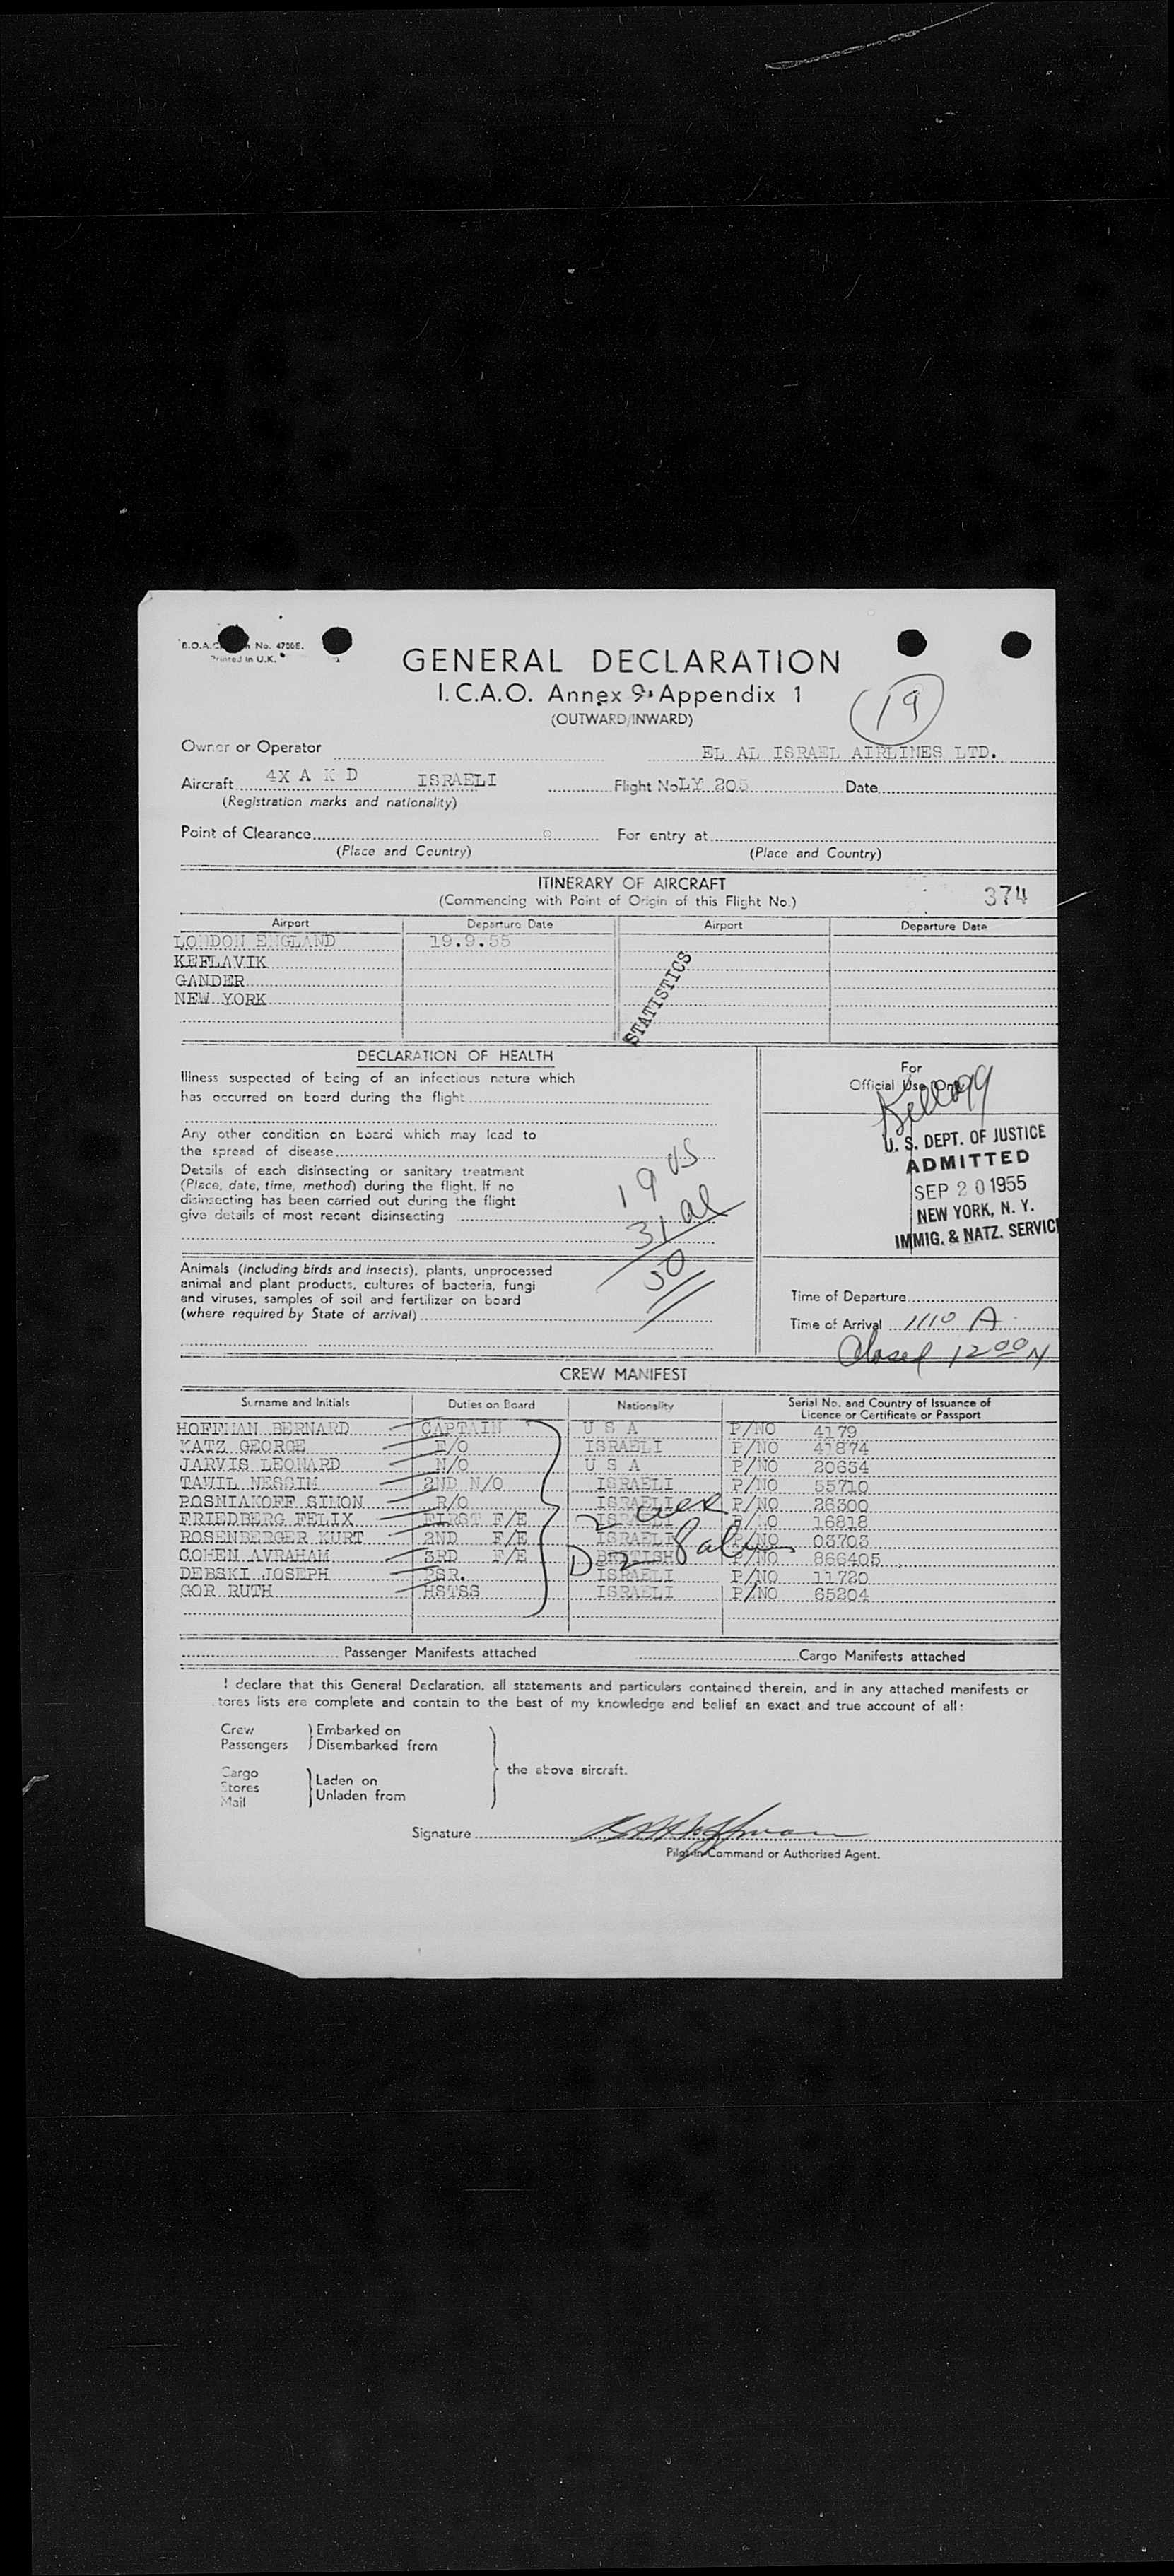 No. 4700E.
Printed in U.K.
GENERAL DECLARATION
I.C.A.O. Annex 9, Appendix 1
(OUTWARD/INWARD)
19
Owner or Operator EL AL ISRAEL AIRLINES LTD.
Aircraft 4X A K D ISRAELI Flight No LY 205 Date
(Registration marks and nationality)
Point of Clearance For entry at
(Place and Country) (Place and Country)
ITINERARY OF AIRCRAFT
(Commencing with Point of Origin of this Flight No.) 374
Airport Departure Date Airport Departure Date
LONDON ENGLAND 19.9.55
KEFLAVIK
GANDER
NEW YORK
STATISTICS
DECLARATION OF HEALTH
Illness suspected of being of an infectious nature which
has occurred on board during the flight
Any other condition on board which may lead to
the spread of disease
Details of each disinsecting or sanitary treatment
(Place, date, time, method) during the flight. If no
disinsecting has been carried out during the flight
give details of most recent disinsecting
19 US
31 al
50
Animals (including birds and insects), plants, unprocessed
animal and plant products, cultures of bacteria, fungi
and viruses, samples of soil and fertilizer on board
(where required by State of arrival)
For
Official Use Only
Kellogg
U. S. DEPT. OF JUSTICE
ADMITTED
SEP 20 1955
NEW YORK, N. Y.
IMMIG. & NATZ. SERVIC
Time of Departure
Time of Arrival 1110 A
Closed 12 00 N
CREW MANIFEST
Surname and Initials Duties on Board Nationality Serial No. and Country of Issuance of
Licence or Certificate or Passport
HOFFMAN BERNARD CAPTAIN U S A P/NO 4179
KATZ GEORGE F/O ISRAELI P/NO 41874
JARVIS LEONARD N/O U S A P/NO 20634
TAWIL NESSIM 2ND N/O ISRAELI P/NO 55710
POSNIAKOFF SIMON R/O ISRAELI P/NO 26300
FRIEDBERG FELIX FIRST F/E ISRAELI P/NO 16818
ROSENBERGER KURT 2ND F/E ISRAELI P/NO 03703
COHEN AVRAHAM 3RD F/E BRITISH P/NO 866405
DEBSKI JOSEPH PSR. ISRAELI P/NO 11720
GOR RUTH HSTSS ISRAELI P/NO 65204
D 2
Passenger Manifests attached Cargo Manifests attached
I declare that this General Declaration, all statements and particulars contained therein, and in any attached manifests or
stores lists are complete and contain to the best of my knowledge and belief an exact and true account of all:
Crew Embarked on
Passengers Disembarked from
the above aircraft.
Cargo
Stores Laden on
Mail Unladen from
Signature Hoffman
Pilot-in-Command or Authorised Agent.